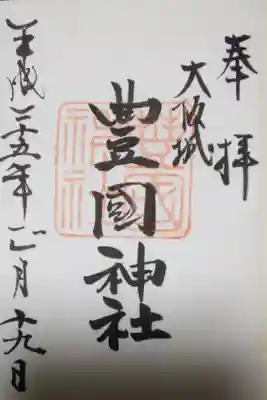 奉拝
大阪城
豊國神社
平成二十五年正月十九日